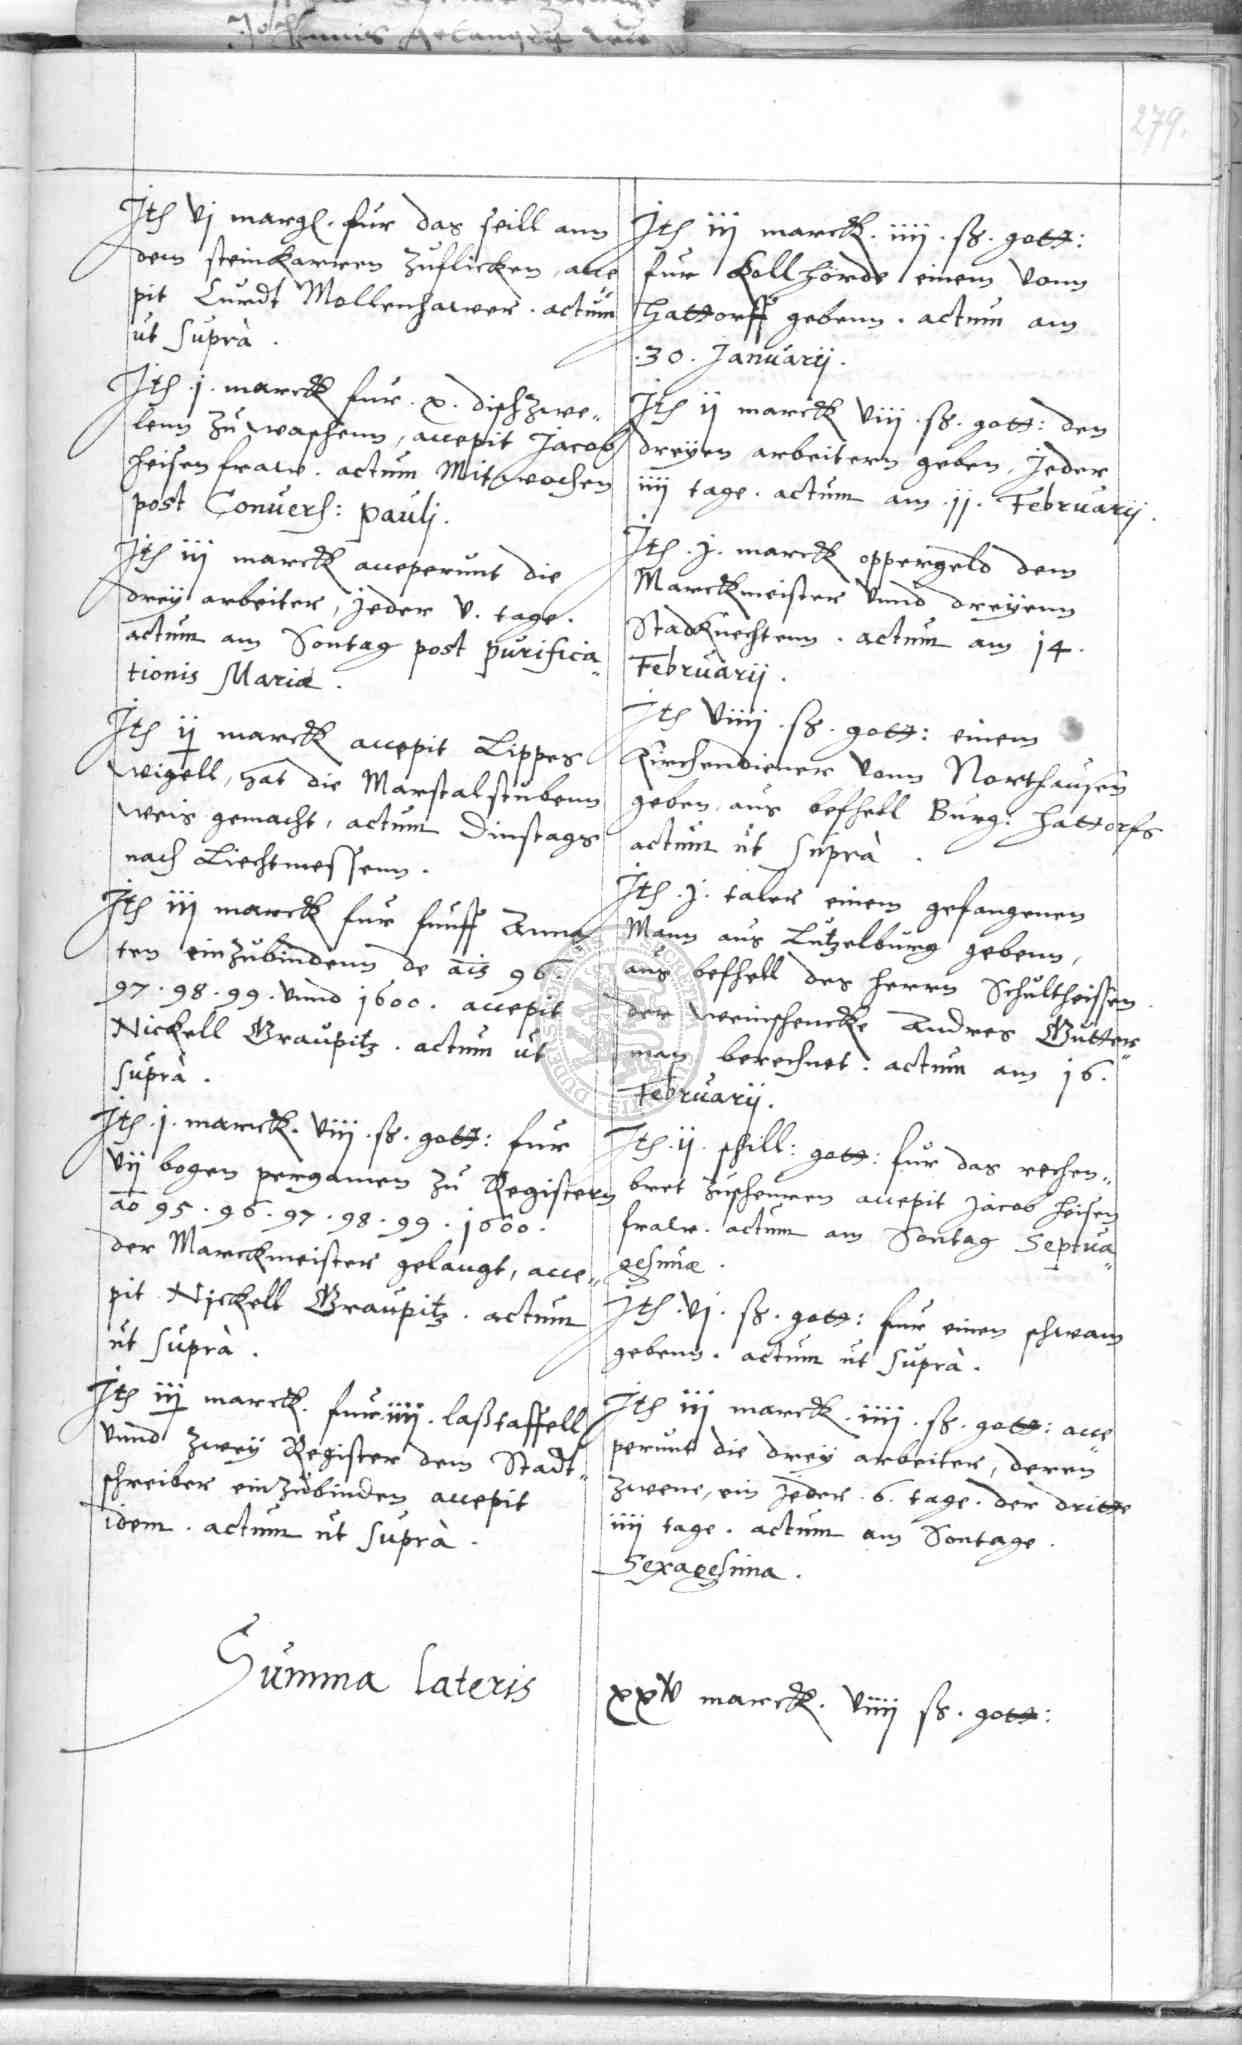 279.
Jtẽ vj margl. fur das seill ann
dem steinkarren zuflicken, acce„
pit Curdt Mollenhawer. actum
ut supra.
Jtẽ .j. marck fur .x. dischzwe„
lenn zu waschenn, accepit Jacob
Heisen fraw. actum Mitwochen
post Convers: Paulj.
Jtẽ iij marck acceperunt die
drey arbeiter, Jeder v. tage.
actum am Sontag post purifica„
tionis Mariæ.
Jtẽ ij marck accepit Lippes
Wigell, hat die Marstalstubenn
weis gemacht, actum Dinstags
nach Liechtmessenn.
Jtẽ iij marck fur funff Anna„
ten einzubindenn de ais 96.
97. 98. 99. vnnd 1600. accepit
Nickell Graupitz. actum ut
supra.
Jtẽ .j. marck. viij. ß. gott: fur
vij bogen pergamen zu Registern
ao 95. 96. 97. 98. 99. 1600.
der Marckmeister gelangt, acce„
pit Nickell Graupitz. actum
ut supra.
Jtẽ iij marck. fur iiij. laßtaffell
vnnd zwey Register dem Stadt„
schreiber einzubinden accepit
idem. actum ut supra.
Jtẽ iij marck. iiij. ß. gott:
fur Kollhörde einem vonn
Hattorff gebenn. actum am
.30. Januarij.
Jtẽ ij marck viij. ß. gott: den
dreyen arbeitern geben, Jeder
iiij tage. actum am .jj. Februarij.
Jtẽ .j. marck oppergeld dem
Marckmeister vnnd dreyenn
Stadknechtenn. actum am 14.
Februarij.
Jtẽ viiij. ß. gott: einem
Kirchendiener vonn Northausen
geben, aus befhell Burg: Hattorfs
actum ut supra.
Jtẽ .j. taler einem gefangenen
Mann aus Lutzelburg gebenn,
aus befhell des Herrn Schultheissen.
der Weinschencke Andres Gutter„
man berechnet. actum am 16.
Februarij.
Jtẽ .ij. schill: gott: fur das rechen„
bret zuscheuren accepit Jacob Heisen
fraw. actum am Sontag Septua„
gesimæ.
Jtẽ .vj. ß. gott: fur einen schwam
gebenn. actum ut supra.
Jtẽ iij marck. iiij. ß. gott: acce„
perunt die drey arbeiter, deren
zwene, ein Jeder .6. tage. der dritte
iiij tage. actum am Sontage.
Sexagesima.
Summa lateris
xxv marck. viiij ß. gott: